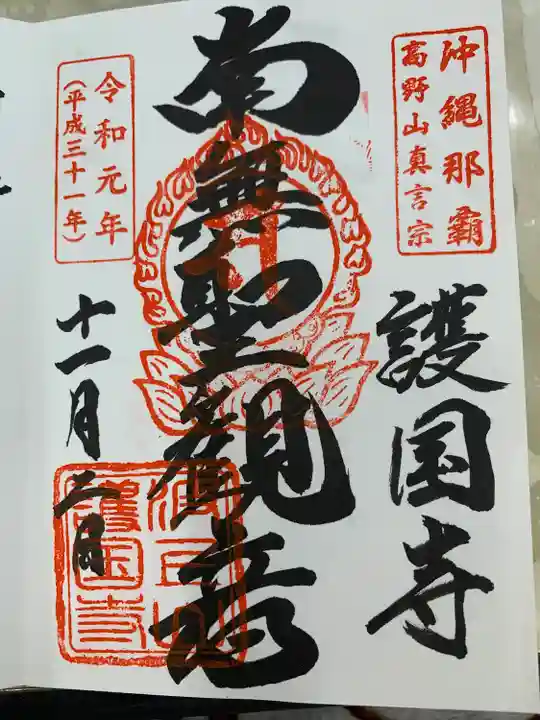 沖縄那覇
高野山真言宗
護国寺
南無聖観音
令和元年
(平成三十一年)
十一月二日
波上山
護国寺